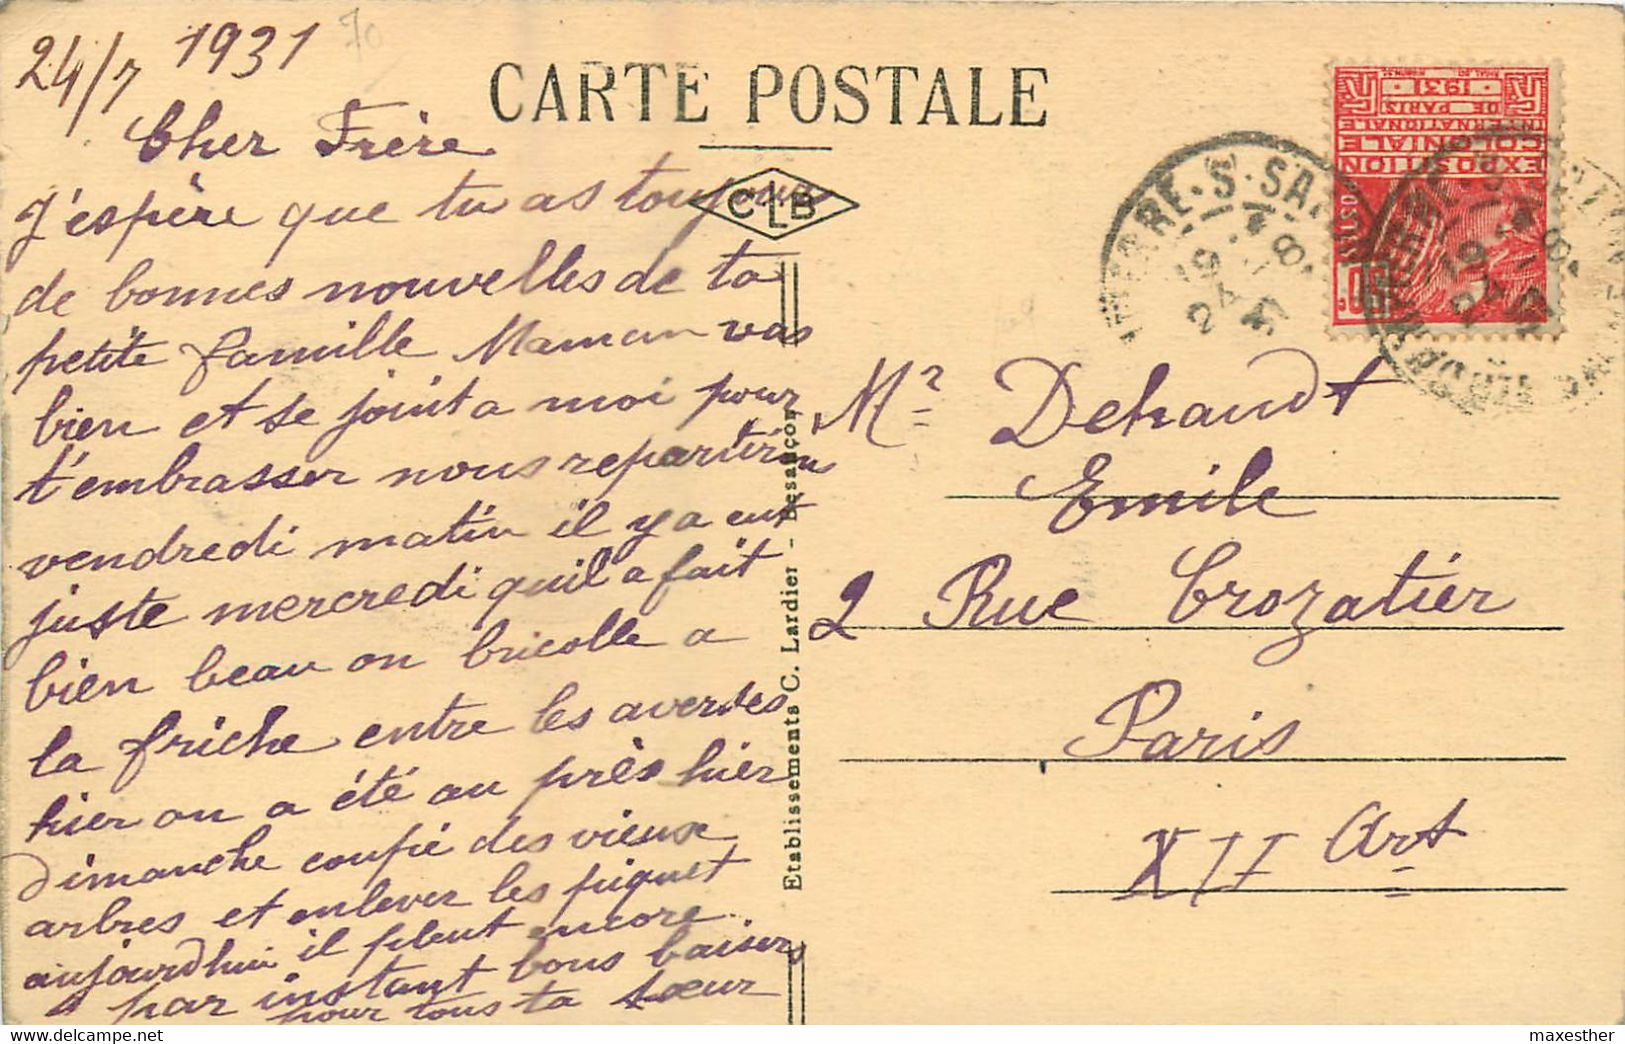 24/7 1931
70
CARTE POSTALE
Cher Frère
J'espère que tu as toujours
de bonnes nouvelles de ta
petite famille Maman vas
bien et se joint a moi pour
t'embrasser nous repartirons
vendredi matin il y a eut
juste mercredi quil a fait
bien beau on bricolle a
la friche entre les averses
hier on a été au près hier
Dimanche coupé des vieux
arbres et enlever les piquet
aujourdhui il pleut encore
par instant bons baisers
pour tous ta sœur
CLB
Etablissements C. Lardier - Besançon
EXPOSITION
COLONIALE
INTERNATIONALE
DE PARIS
1931
POSTES
.50
19 - 8
24 -
19 - 8
24 -
Mr Dehaudt
Emile
2 Rue Crozatier
Paris
XII Art
maxesther